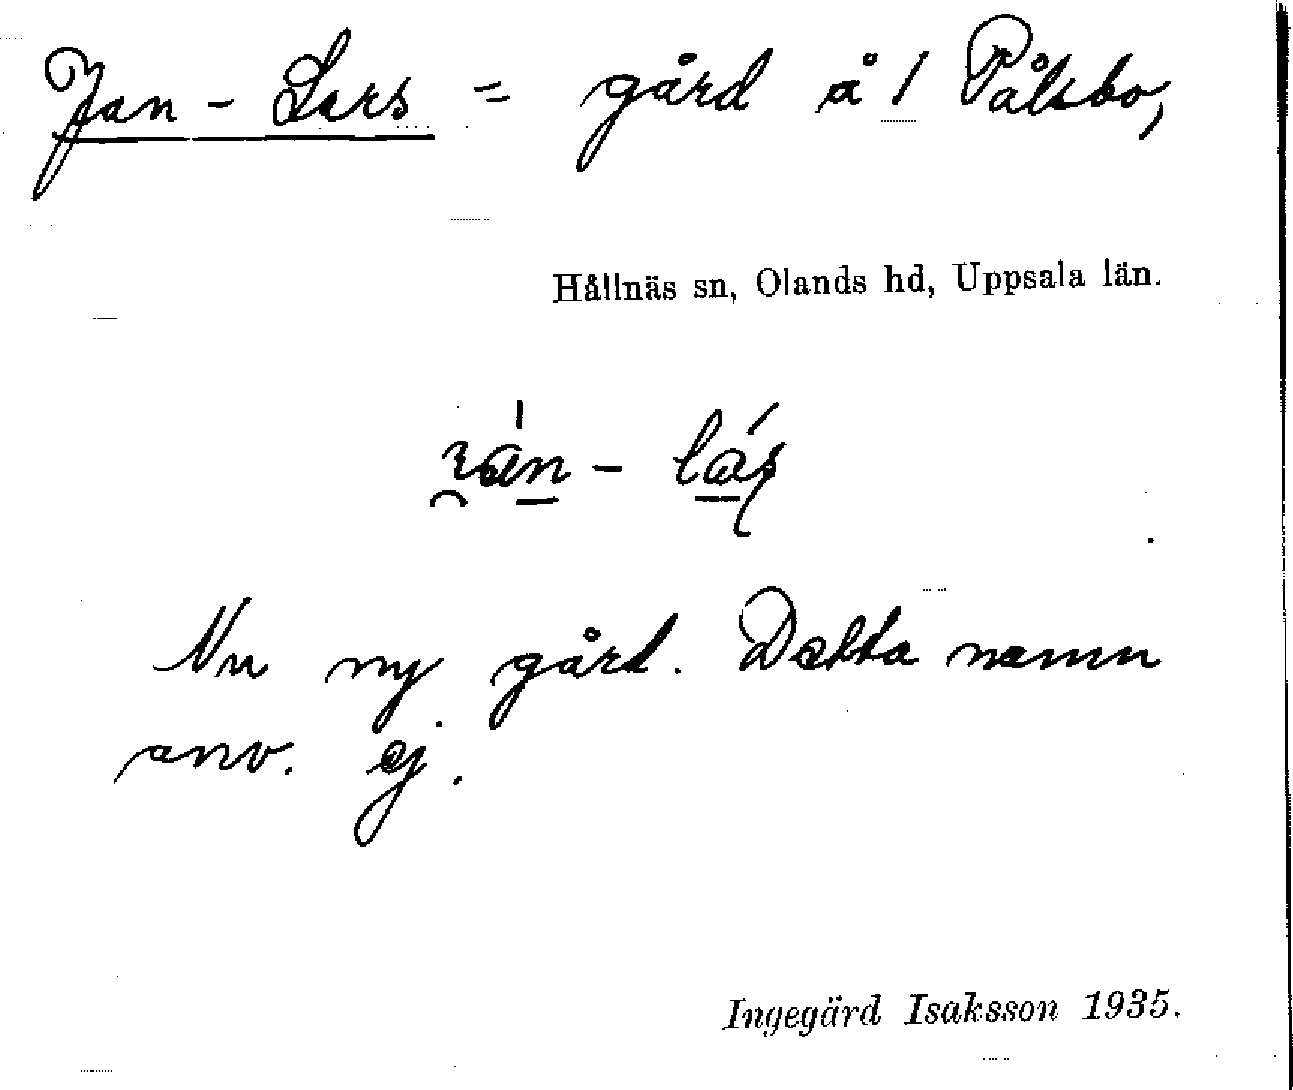 Jan-Lars = gård å 1 Pålsbo,
Hållnäs sn, Olands hd, Uppsala län.
Nu ny gård. Detta namn
anv. ej.
Ingegärd Isaksson 1935.